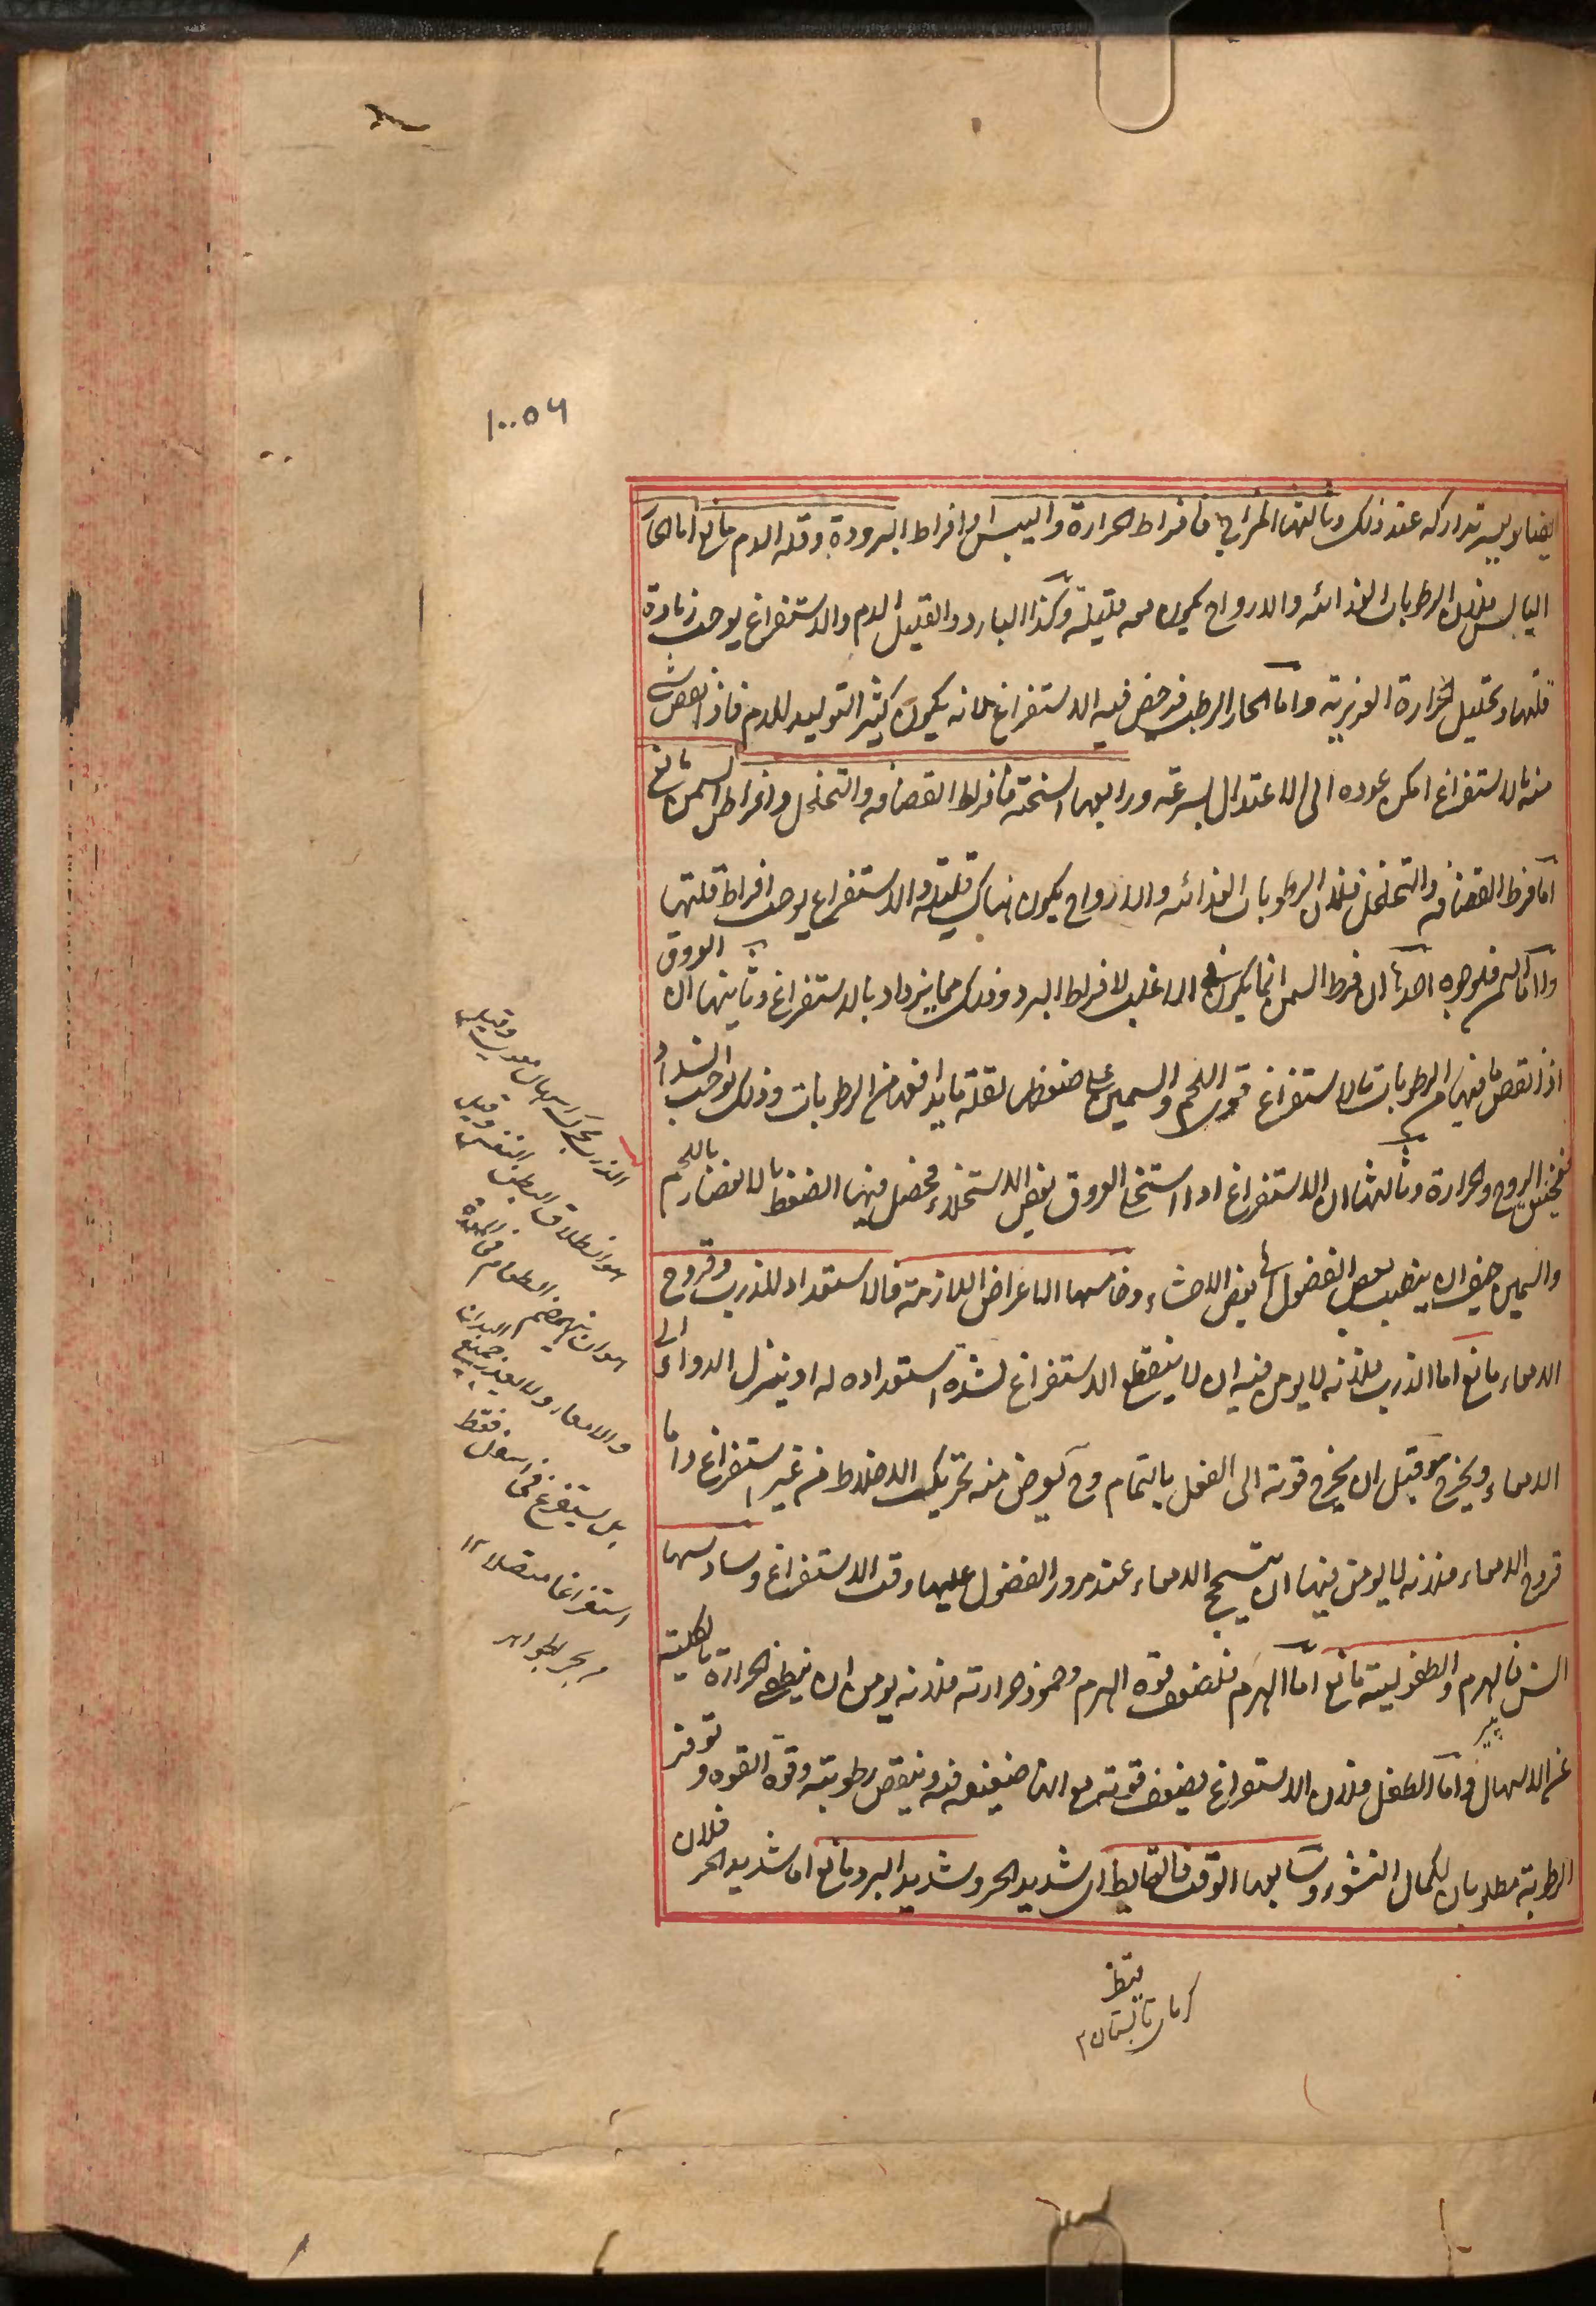 ١٠٠٥٦
ايضا ويسير تداركه عند ذلك وثالثها المزاج فافراط الحرارة واليبس او افراط البرودة وقلة الدم مانع اما الحار
اليابس فلان الرطوبات الغذائية والارواح يكون معه قليلة وكذا البارد والقليل الدم والاستفراغ يوجب زيادة
قلتها وتحليل الحرارة الغريزية واما الحار الرطب فرخص فيه الاستفراغ لانه يكون كثير التوليد للدم فاذا نقص شئ
منه بالاستفراغ امكن عوده الى الاعتدال بسرعة ورابعها السحنة فافراط القضافة والتخلخل وافراط السمن مانع
اما فرط القضافة والتخلخل فلان الرطوبات الغذائية والارواح يكون هناك قليلة والاستفراغ يوجب افراط قلتها
واما السمن فلوجوه احدها ان فرط السمن انما يكون في الاغلب لافراط البرد وذلك مما يزداد بالاستفراغ وثانيها ان العروق
اذا نقص ما فيها من الرطوبات بالاستفراغ قوى اللحم والسمين على ضغطها لقلة ما يدافعه من الرطوبات وذلك يوجب انسداد
فيختنق الروح والحرارة وثالثها ان الاستفراغ اذا استخلى العروق بعض الاستخلاء فحصل فيها الضغط بالانعصار باللحم
والسمين خيف ان ينصب بعض الفضول الى بعض الاحشاء وخامسها الاعراض اللازمة فالاستعداد للذرب وقروح
الامعاء مانع اما الذرب فلانه لا يومن فيه ان لا ينقطع الاستفراغ لشدة استعداده له او ينزل الدواء الى
الامعاء ويخرج قبل ان يخرج قوته الى الفعل بالتمام وح يعرض منه تحريك الاخلاط من غير استفراغ واما
قروح الامعاء فلانه لا يومن فيها ان يتسحج الامعاء عند مرور الفضول عليها وقت الاستفراغ وسادسها
السن فالهرم والطفولية مانع اما الهرم فلضعف قوة الهرم وخمود حرارته فلانه يومن ان ينطفئ الحرارة بالكلية
پیر
عن الاسهال واما الطفل فلان الاستفراغ يضعف قوته مع انها ضعيفة فيه وينقص رطوبته وقوة القوة وتوفر
الرطوبة مطلوبان لكمال النشو وسابعها الوقت فالقايظ اى شديد الحر وشديد البرد مانع اما شديد الحر فلان
الذرب محركة اسهال معدى وقيل
هو انطلاق البطن النفس وقيل
هو ان ينهضم الطعام فى المعدة
والامعاء ولا يغذ جميع البدن
بل يستفرغ من اسفل فقط
استفراغا متصلا ١٢
بحر الجواهر
قيظ
گرمای تابستان ٢